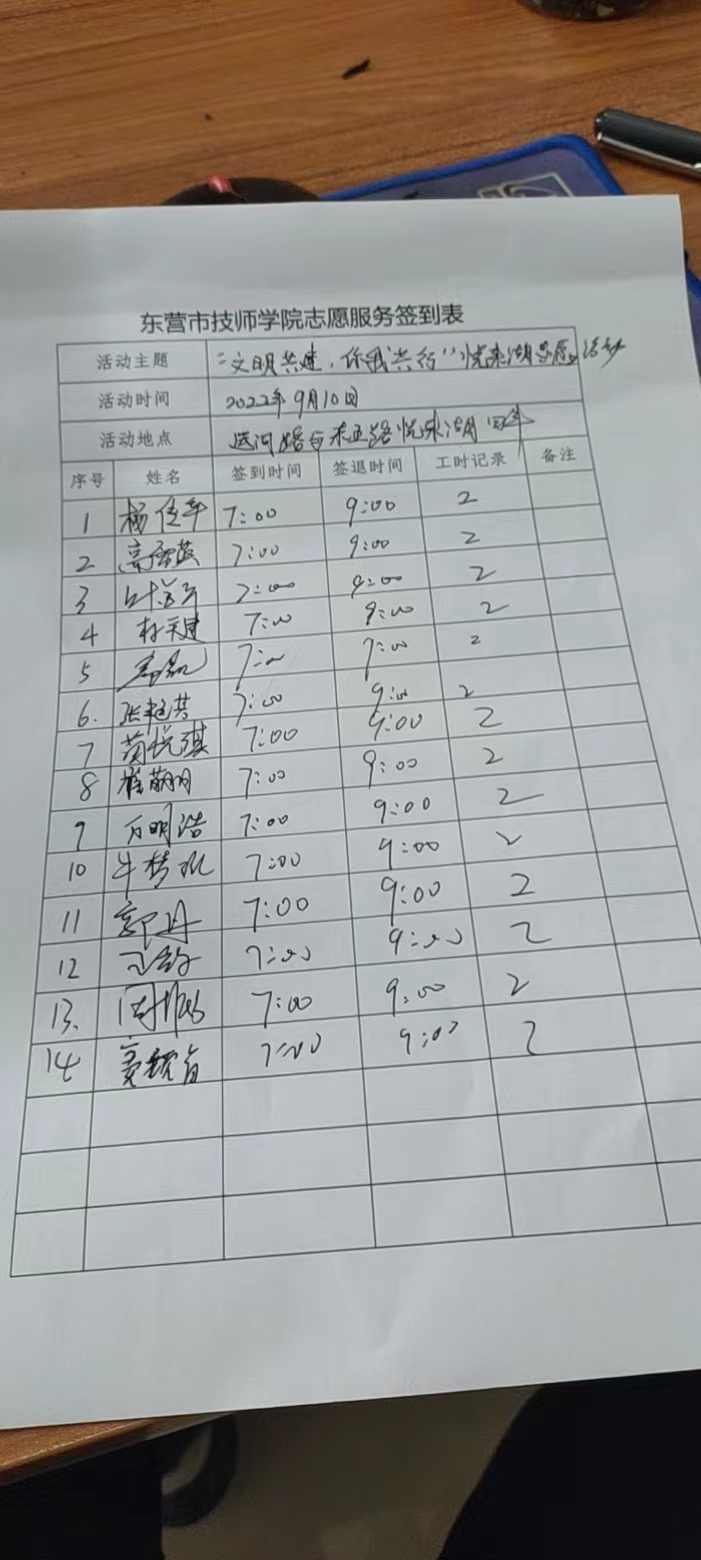 东营市技师学院志愿服务签到表
活动主题 "文明共建,你我共行"悦来湖志愿活动
活动时间 2022年9月10日
活动地点 运河路与 路悦来湖
序号 姓名 签到时间 签退时间 工时记录 备注
1 杨佳 7:00 9:00 2
2 高 7:00 9:00 2
3 叶 7:00 9:00 2
4 杜天建 7:00 9:00 2
5 7:00 9:00 2
6. 张艳芳 7:00 9:00 2
7 苟悦琪 7:00 9:00 2
8 崔萌月 7:00 9:00 2
9 万明浩 7:00 9:00 2
10 牛梦 7:00 9:00 2
11 郭丹 7:00 9:00 2
12 7:00 9:00 2
13. 周 7:00 9:00 2
14 7:00 9:00 2